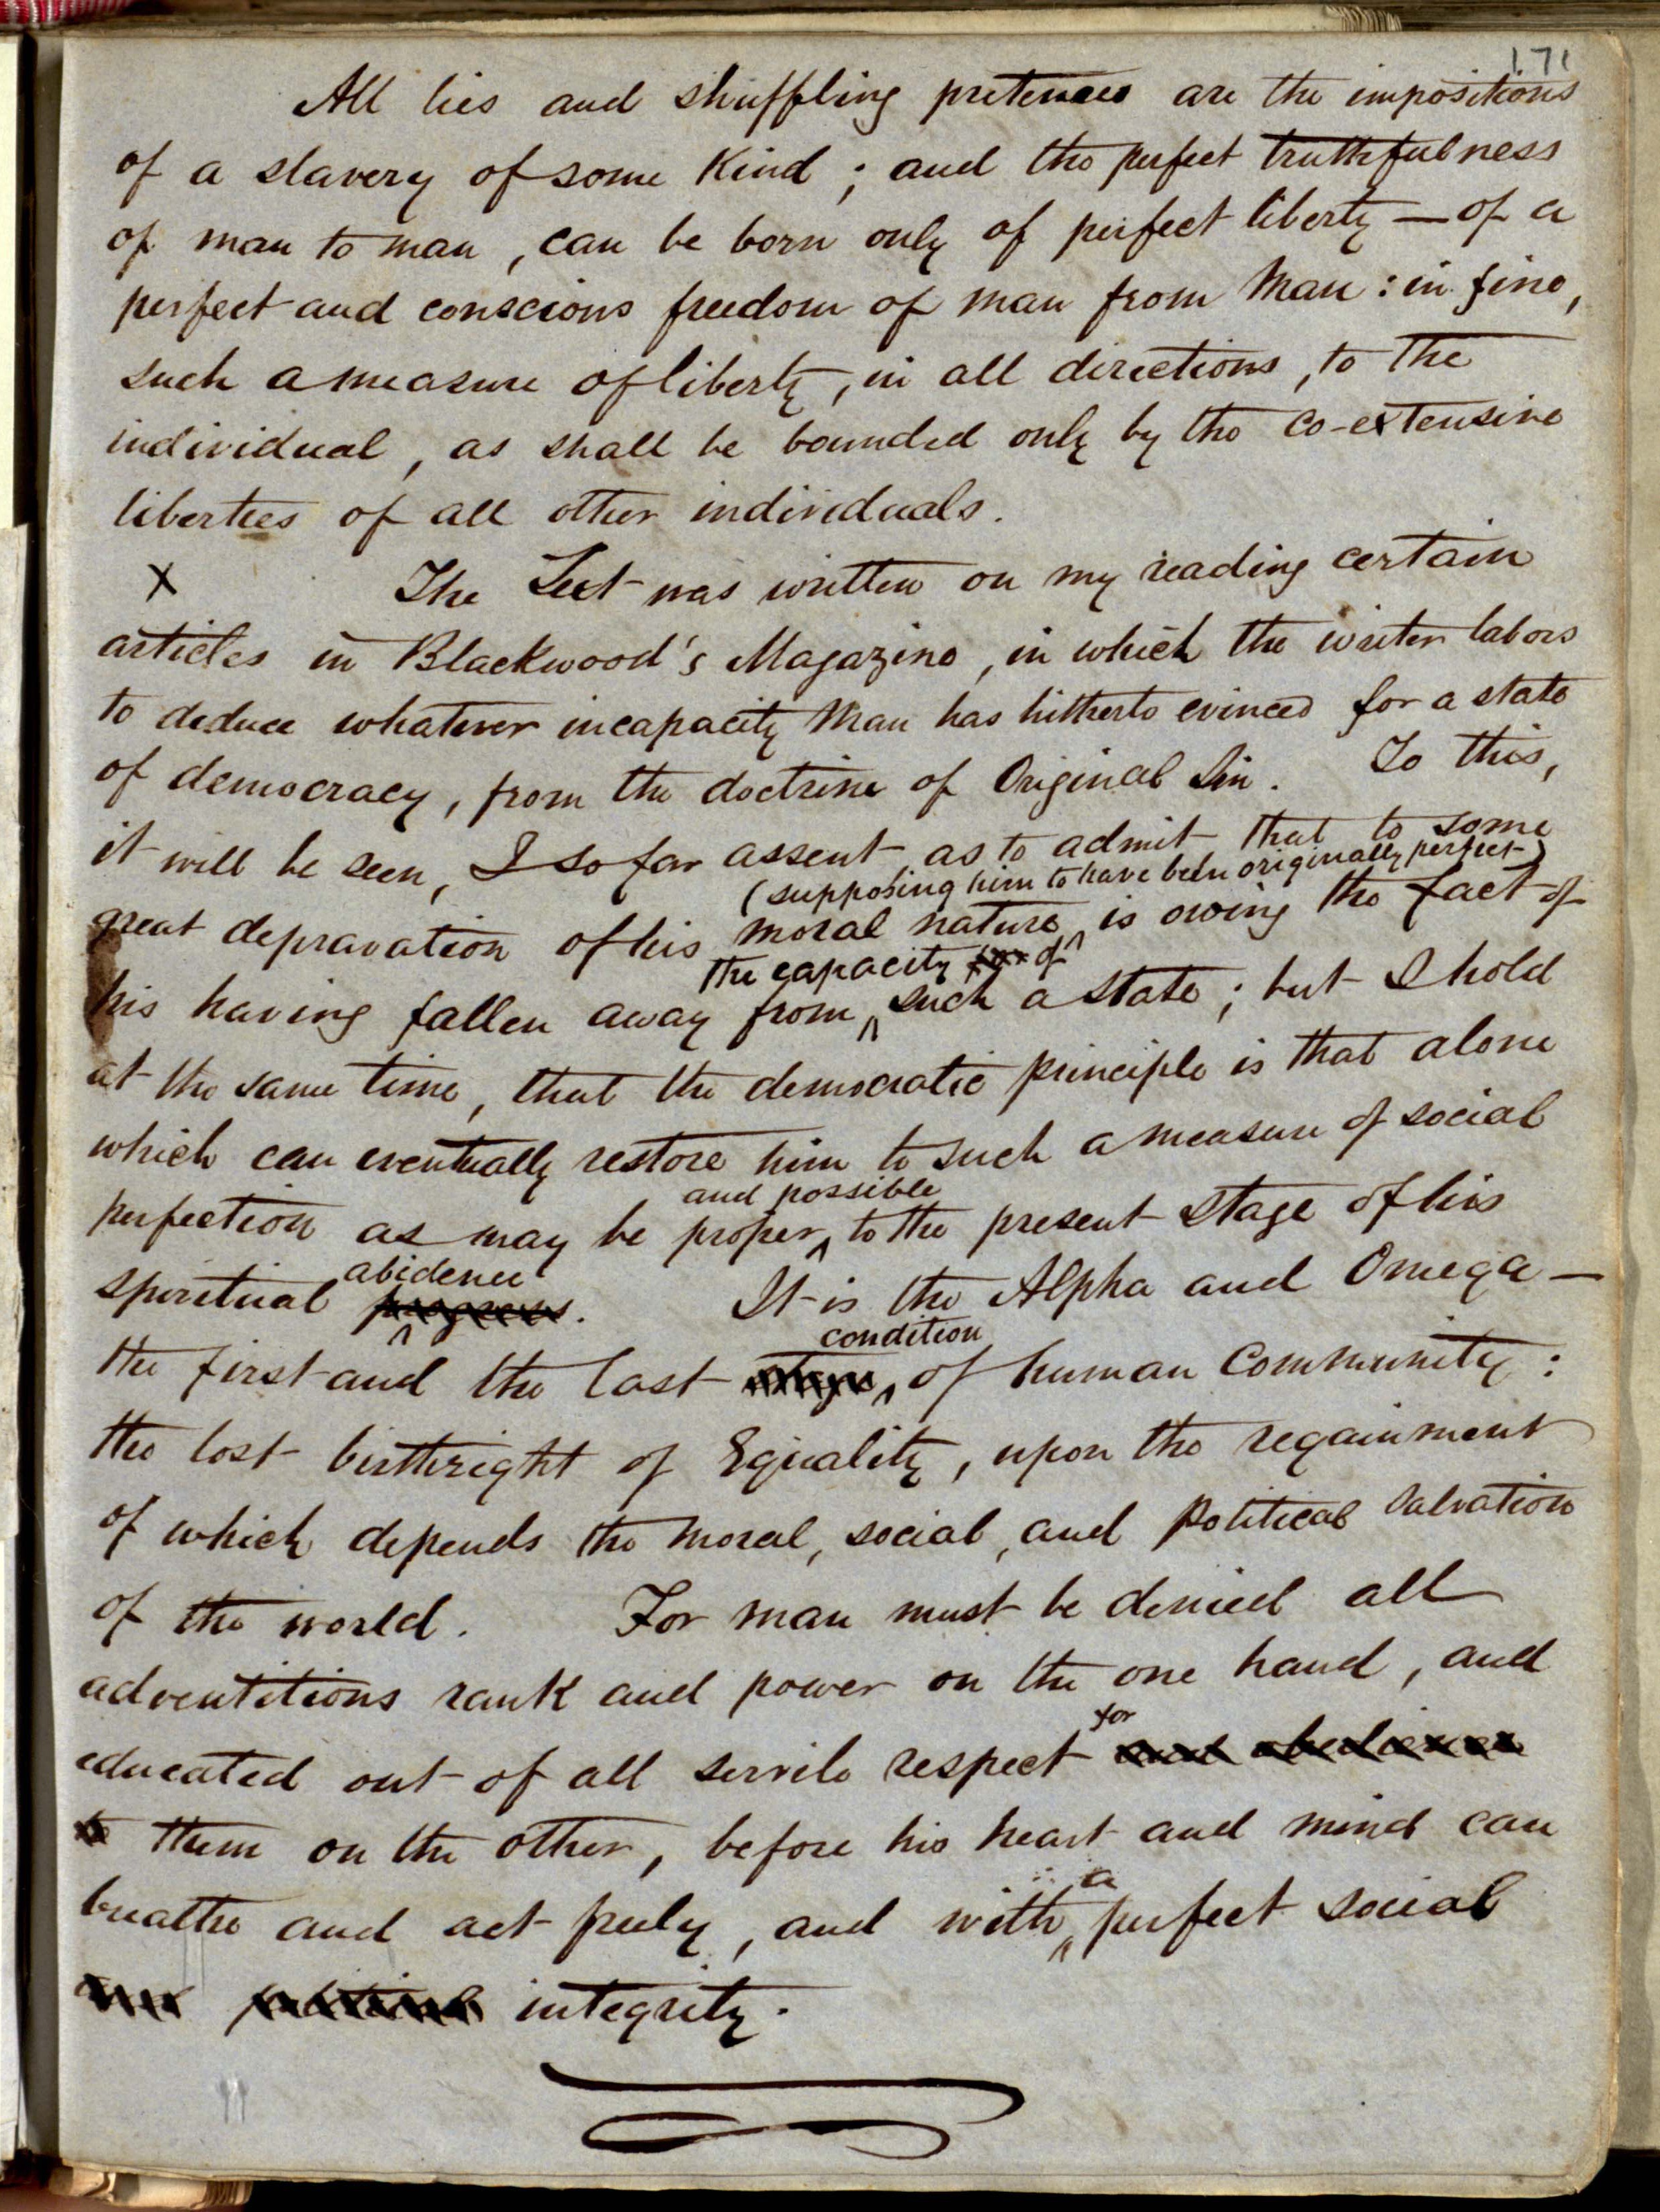 171
All lies and shuffling pretences are the impositions
of a slavery of some Kind ; and the perfect truthfulness
of man to man , can be born only of perfect liberty — of a
perfect and conscious freedom of man from Man : in fine,
such a measure of liberty, in all directions, to the
individual, as shall be bounded only by the co-extensive
liberties of all other individuals.
X The Text was written on my reading certain
articles in Blackwood's Magazine, in which the writer labors
to deduce whatever incapacity Man has hitherto evinced for a state
of democracy, from the doctrine of Original Sin. To this,
it will be seen, I so far assent as to admit that to some
(supposing him to have been originally perfect)
great depravation of his moral nature is owing the fact of
the capacity of
his having fallen away from such a state; but I hold
at the same time, that the democratic principle is that alone
which can eventually restore him to such a measure of social
and possible
perfection as may be proper to the present stage of his
abidence
spiritual progress. It is the Alpha and Omega —
condition
the first and the last stage of human Community :
the lost birthright of Equality, upon the regainment
of which depends the moral, social, and political Salvation
of the world. For man must be denied all
adventitious rank and power on the one hand, and
for
educated out of all servile respect and obedience
to them on the other, before his heart and mind can
a
breathe and act freely, and with perfect social
and political integrity.